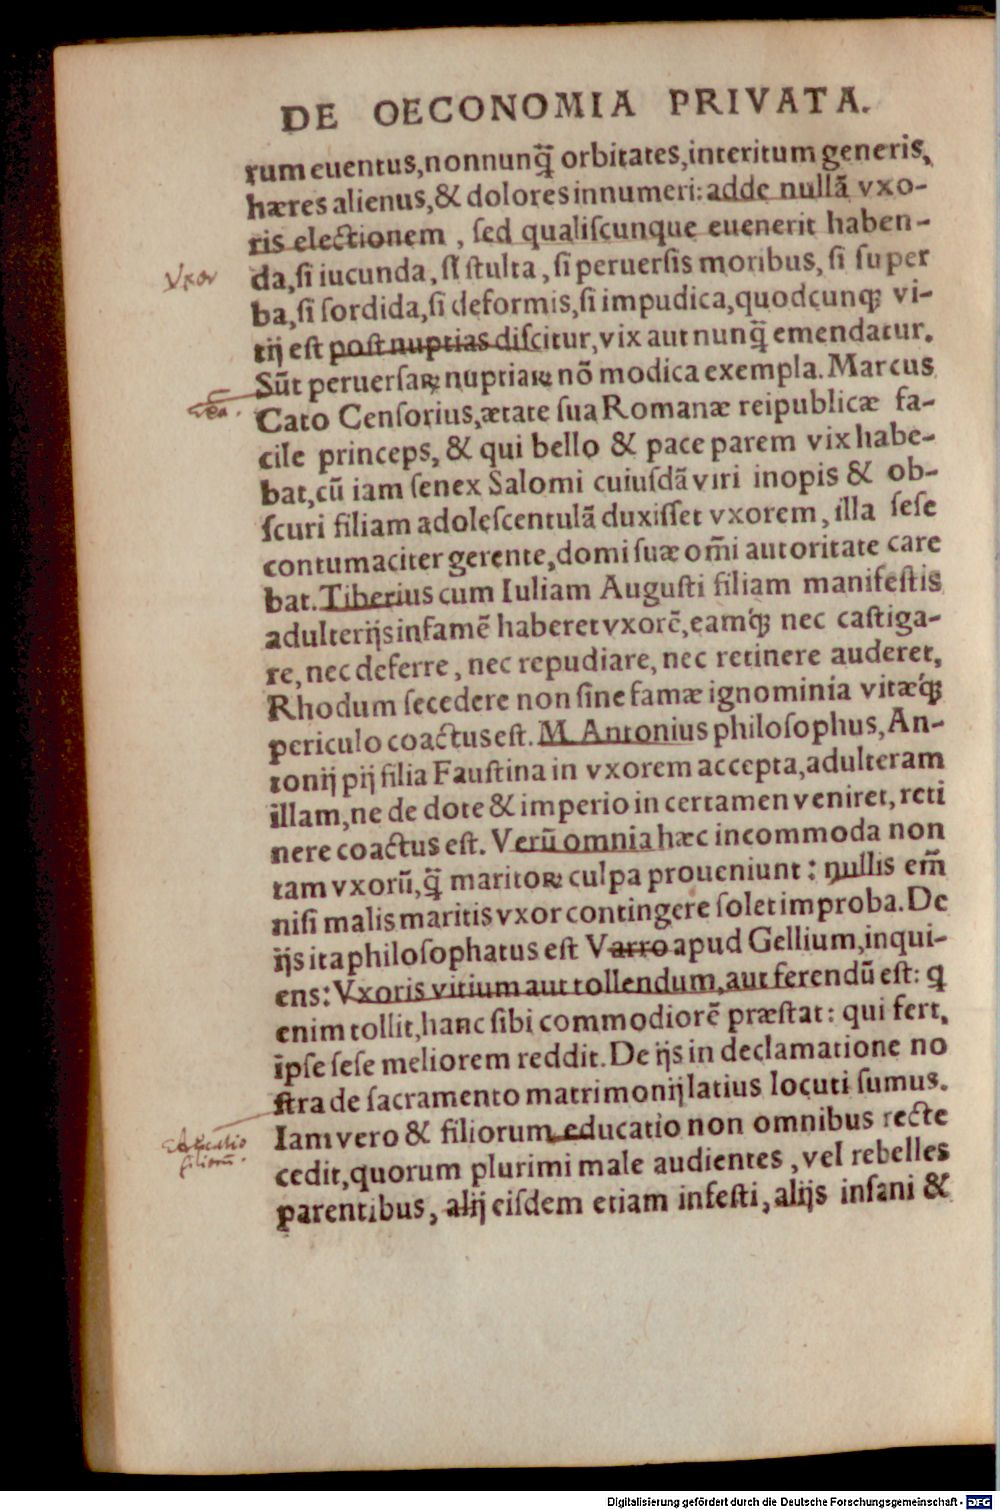 DE OECONOMIA PRIVATA.
rum euentus, nonnunq̃ orbitates, interitum generis,
hæres alienus, & dolores innumeri: adde nullã vxo-
ris electionem, sed qualiscunque euenerit haben-
Vxor
da, si iucunda, si stulta, si peruersis moribus, si super
ba, si sordida, si deformis, si impudica, quodcunqꝫ vi-
tij est post nuptias discitur, vix aut nunq̃ emendatur.
Sũt peruersaꝝ nuptiaꝝ nõ modica exempla. Marcus
Cato Censorius, ætate sua Romanæ reipublicæ fa-
cile princeps, & qui bello & pace parem vix habe-
bat, cũ iam senex Salomi cuiusdã viri inopis & ob-
scuri filiam adolescentulã duxisset vxorem, illa sese
contumaciter gerente, domi suæ om̃i autoritate care
bat. Tiberius cum Iuliam Augusti filiam manifestis
adulterijs infamẽ haberet vxorẽ, eamq́ꝫ nec castiga-
re, nec deferre, nec repudiare, nec retinere auderet,
Rhodum secedere non sine famæ ignominia vitæq́ꝫ
periculo coactus est. M. Antonius philosophus, An-
tonij pij filia Faustina in vxorem accepta, adulteram
illam, ne de dote & imperio in certamen veniret, reti
nere coactus est. Verũ omnia hæc incommoda non
tam vxorũ, q̃ maritoꝝ culpa proueniunt: nullis em̃
nisi malis maritis vxor contingere solet improba. De
ijs ita philosophatus est Varro apud Gellium, inqui-
ens: Vxoris vitium aut tollendum, aut ferendũ est: q
enim tollit, hanc sibi commodiorẽ præstat: qui fert,
ipse sese meliorem reddit. De ijs in declamatione no
stra de sacramento matrimonij latius locuti sumus.
Iam vero & filiorum educatio non omnibus recte
Educatio
filiorũ.
cedit, quorum plurimi male audientes, vel rebelles
parentibus, alij eisdem etiam infesti, alijs insani &
Digitalisierung gefördert durch die Deutsche Forschungsgemeinschaft - DFG